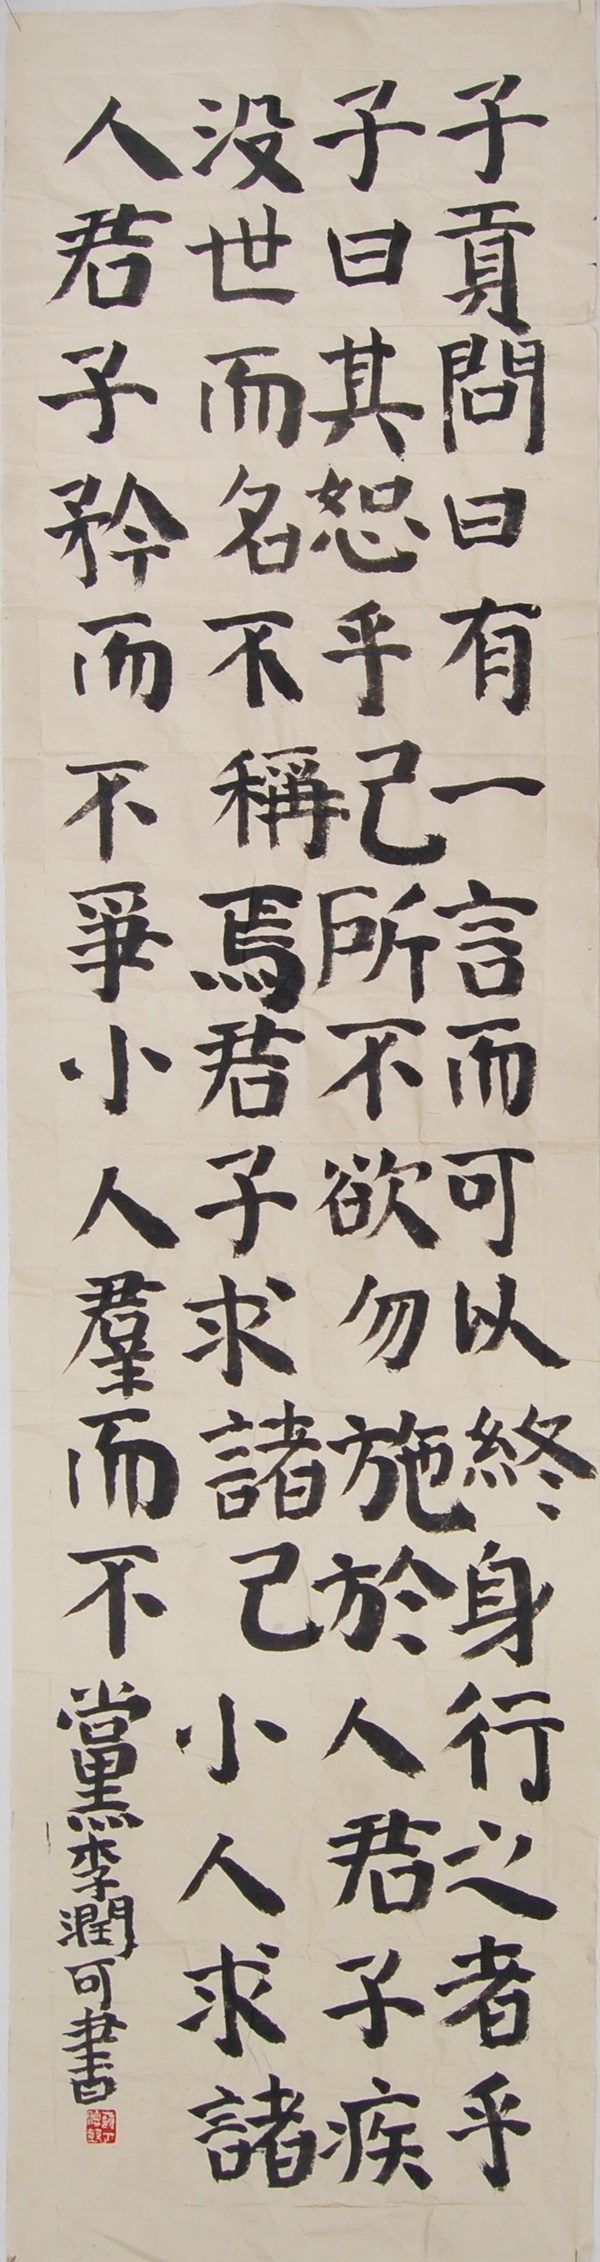 子貢問曰有一言而可以終身行之者乎
子曰其恕乎己所不欲勿施於人君子疾
没世而名不稱焉君子求諸己小人求諸
人君子矜而不爭小人羣而不黨李潤可書